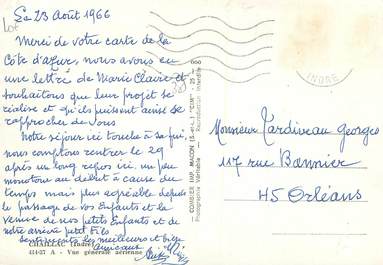 Le 23 Août 1966
Merci de votre carte de la
Côte d'Azur, nous avons eu
une lettre de Marie Claire et
souhaitons que leur projet se
réalise et qu'ils puissent ainsi se
rapprocher de vous
Notre séjour ici touche à sa fin,
nous comptons rentrer le 29
après un long repos ici, un peu
monotone au début à cause du
temps mais plus agréable depuis
le passage de nos Enfants et la
venue de nos petits Enfants et de
notre arrière petit fils
Sentiments les meilleurs et bien
amicaux
CHAILLAC (Indre)
414-37 A - Vue générale aérienne
COMBIER IMP. MACON (S.-et-L.) "CIM"
Photographie Véritable - Reproduction Interdite
INDRE
Monsieur Tardiveau Georges
117 rue Bannier
45 Orléans